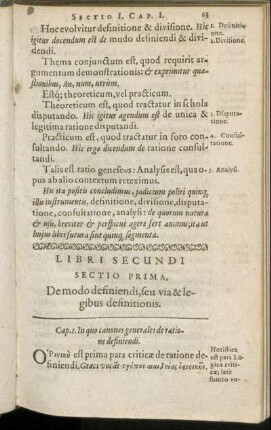 SECTIO I. CAP. I. 65
Hoc evolvitur definitione & divisione. Hic
1. Definitione.
igitur docendum est de modo definiendi & divi-
2. Divisione.
dendi.
Thema conjunctum est, quod requirit ar-
gumentum demonstrationis: & exprimitur quæ-
stionibus, An, num, utrum.
Estq; theoreticum, vel practicum.
Theoreticum est, quod tractatur in schola
disputando. Hic igitur agendum est de unica &
3. Disputatione.
legitima ratione disputandi.
Practicum est, quod tractatur in foro con-
4. Consultatione.
sultando. Hic ergo dicendum de ratione consul-
tandi.
Talis est ratio geneseωs: Analysis est, qua to-
5. Analysi.
pus ab alio contextum reteximus.
Hic ita positis concludimus, judicium poliri quinq;
illis instrumentis, definitione, divisione, disputa-
tione, consultatione, analysi: de quorum natura
& usu, breviter & perspicuè agere fert animus; ita ut
hujus libri futura sint quinq; segmenta.
LIBRI SECUNDI
SECTIO PRIMA,
De modo definiendi, seu via & le-
gibus definitionis.
Cap. 1. In quo canones generales de ratio-
ne definiendi.
est prima pars criticæ de ratione de-
Horistica est pars Logicæ criticæ, late
finiendi, Græci
sumto vo-